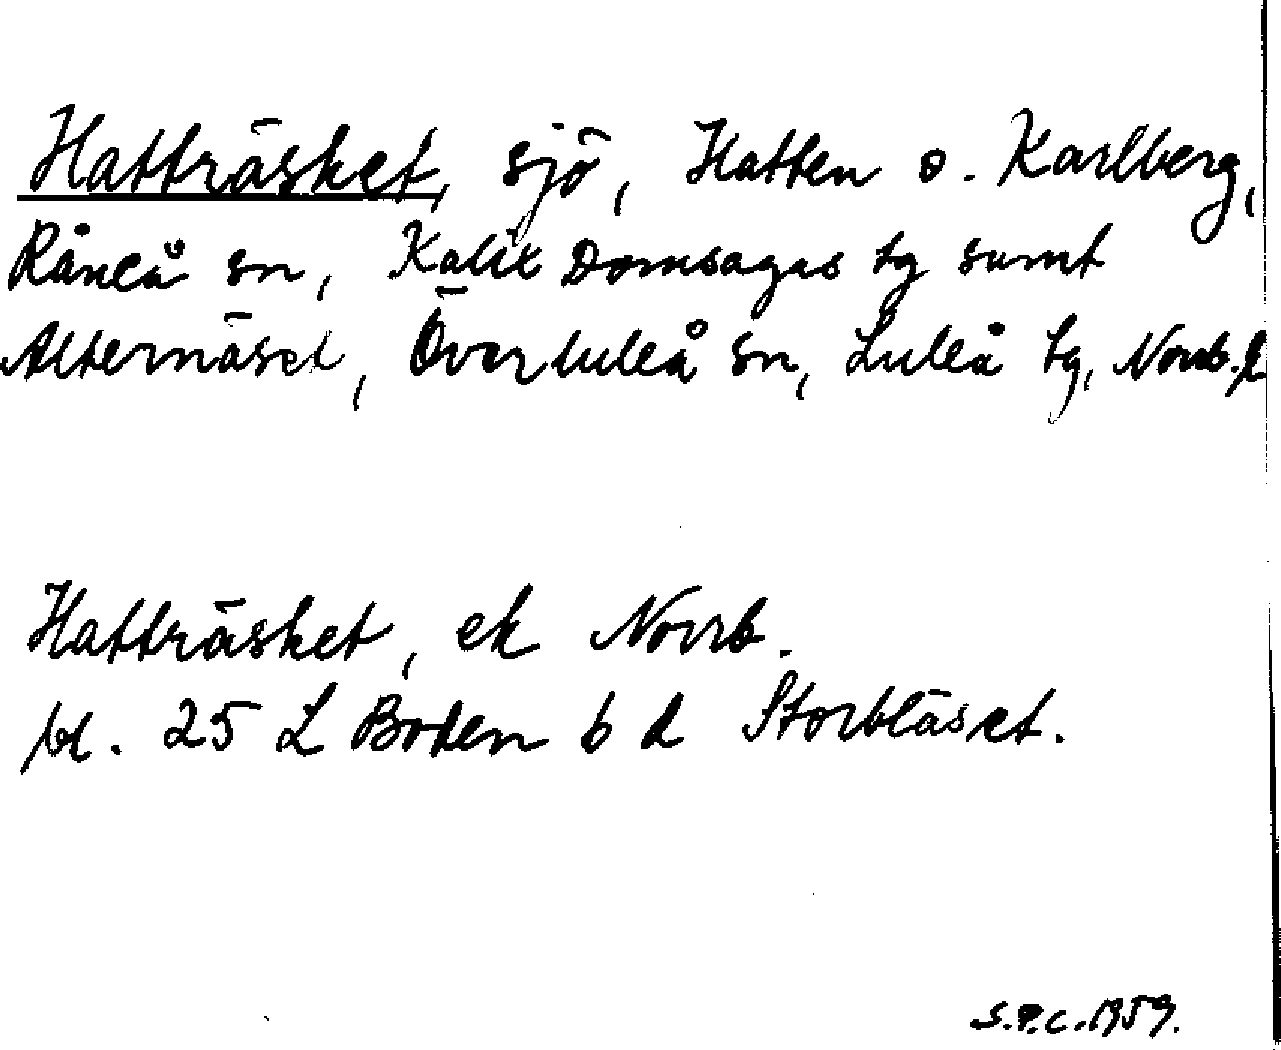 Hatträsket, sjö, Hatten o. Karlberg,
Råneå sn, Kalix Domsagas tg samt
Alternäset, Överluleå sn, Luleå tg, Norrb. l
Hatträsket, ek Norrb.
bl. 25 L Boden b d Storbläset.
S.P.C. 1959.